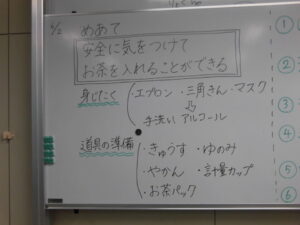 6/2 めあて
安全に気をつけて
お茶を入れることができる
身じたく エプロン・三角きん・マスク
⇩
手洗い アルコール
道具の準備 ・きゅうす ・ゆのみ
・やかん ・計量カップ
・お茶パック
①
②
③
④
⑤
⑥